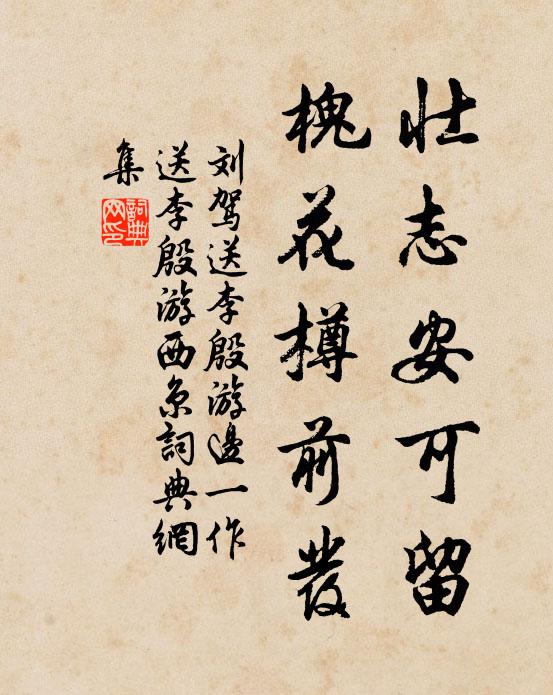 壮志安可留
槐花樽前發
刘驾送李殷游邊一作
送李殷游西京詞典網
集
詞典
网印